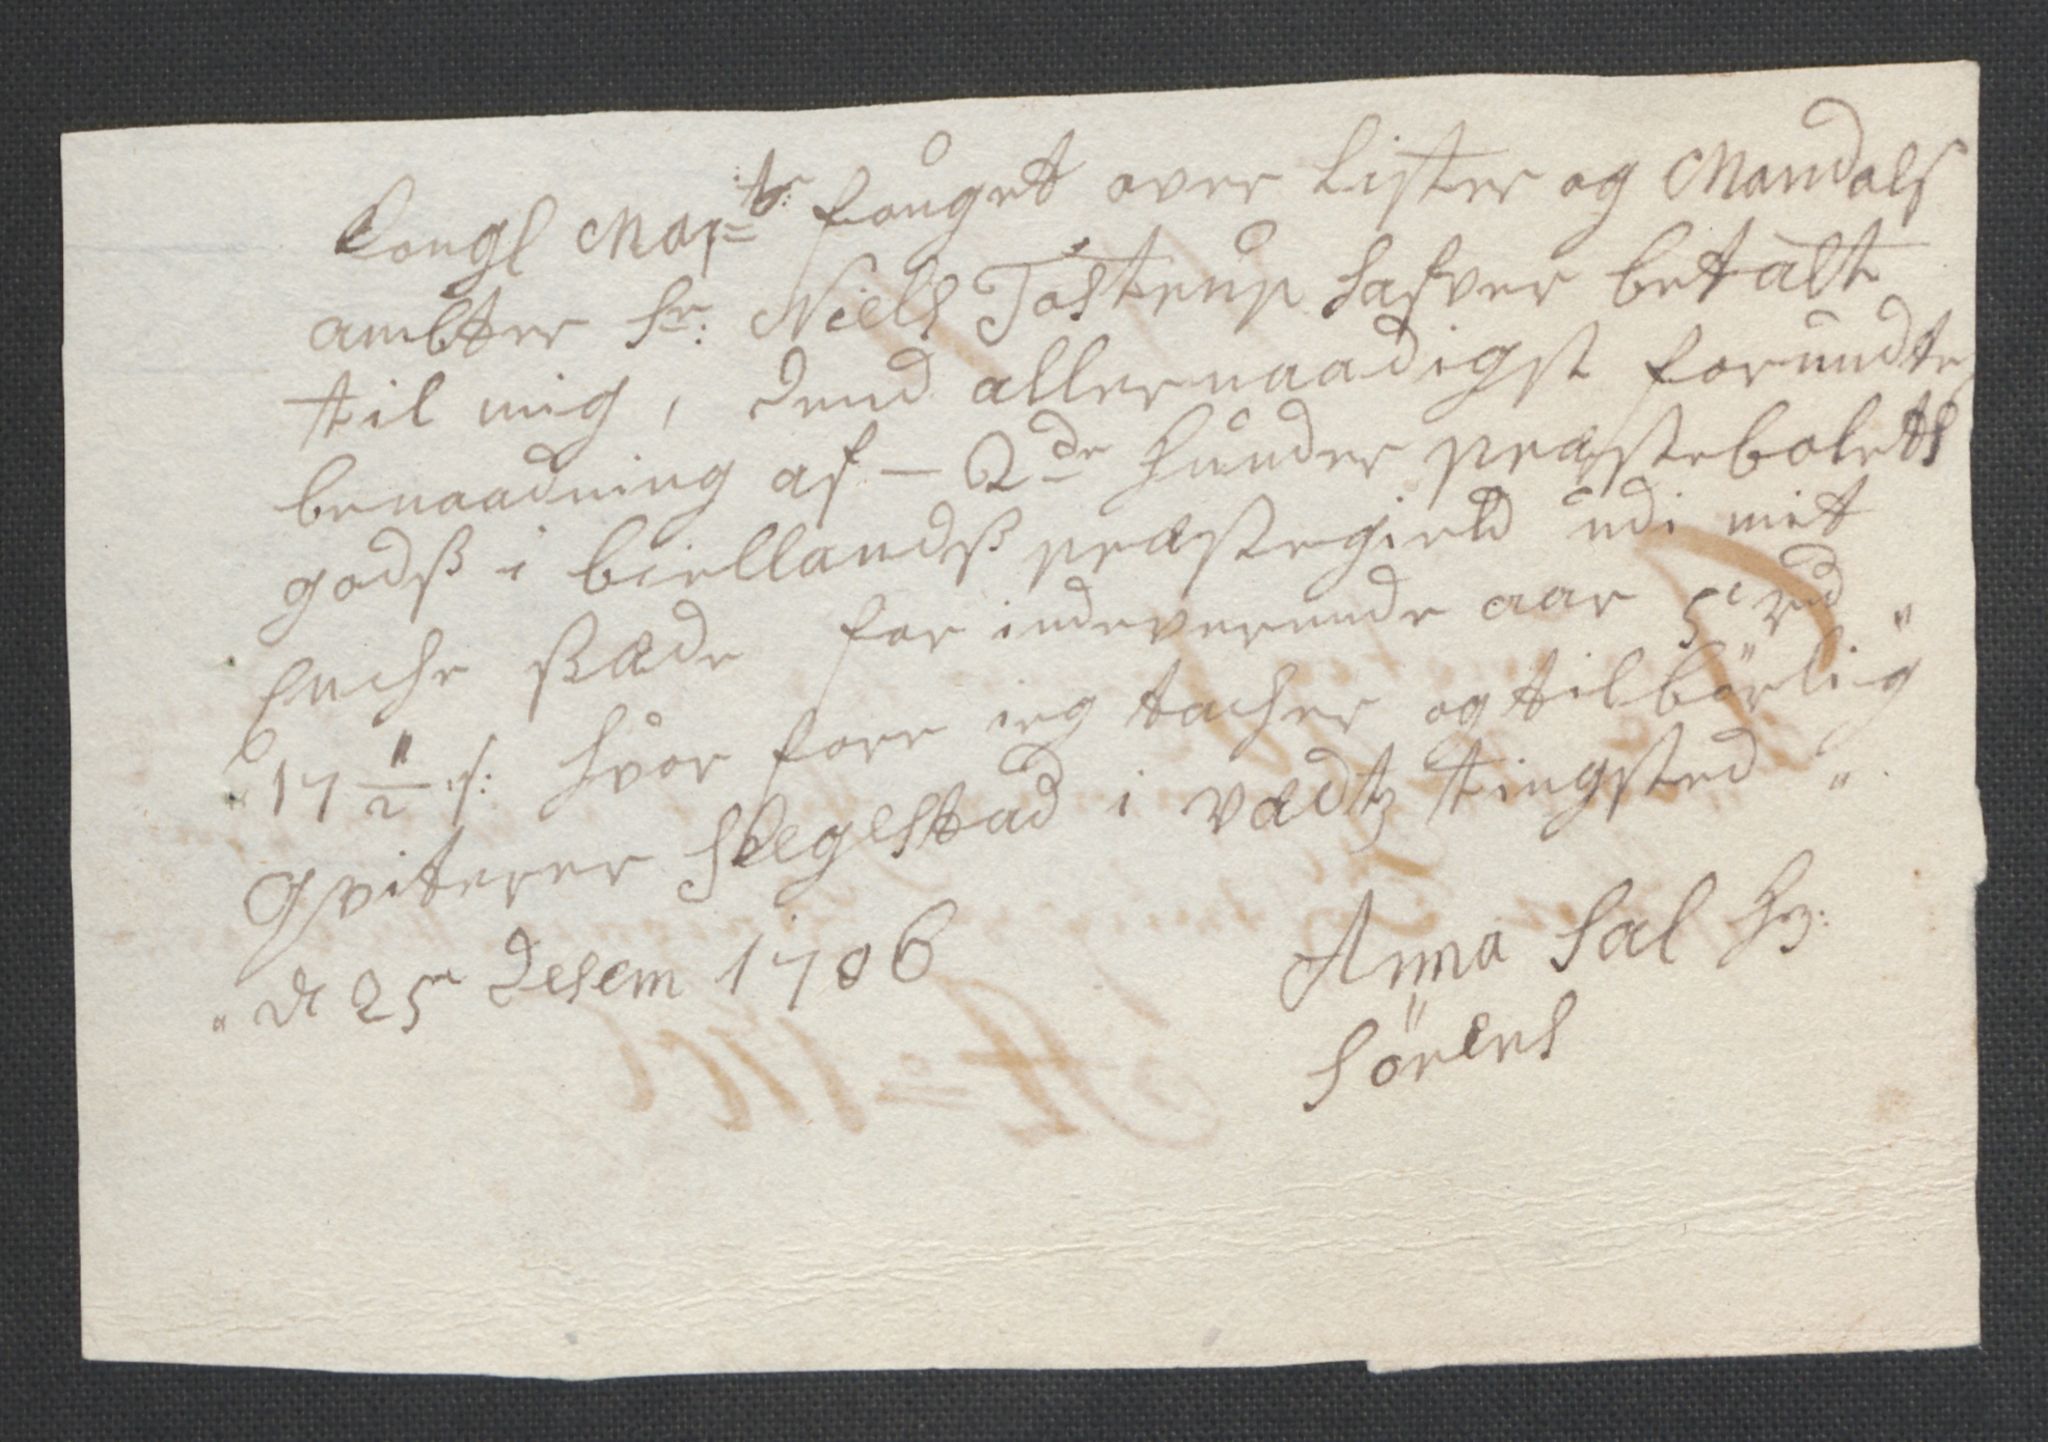 Kongl May=tz: fouget over Lister og Mandals
ambter Sr: Niels Tostrup hafver betalt
til mig, dend allernaadigst forundte
benaadning af - 2de Hunder præstebolets
godß i biellandß præstegield udi mit
Enche stæde for indeverende aar 5 rd
17 1/2 s: hvor fore ieg tacher og tilbörlig
Qviterer Shegestad i vædtz tingsted
d 25 Desem 1706
Anna Sal Hr:
Sörens